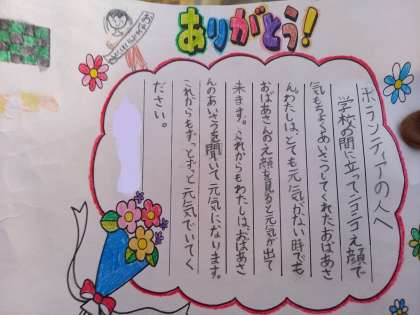 ありがとう!
ボランティアの人へ
学校の間に立って、ニコニコえ顔で
気もちよくあいさつしてくれたおばあさ
ん。わたしは、とても元気がない時でも
おばあさんのえ顔を見ると元気が出て
来ます。これからもわたしは、おばあさ
んのあいさつを聞いて元気になります。
これからもずっとずっと元気でいてく
ださい。